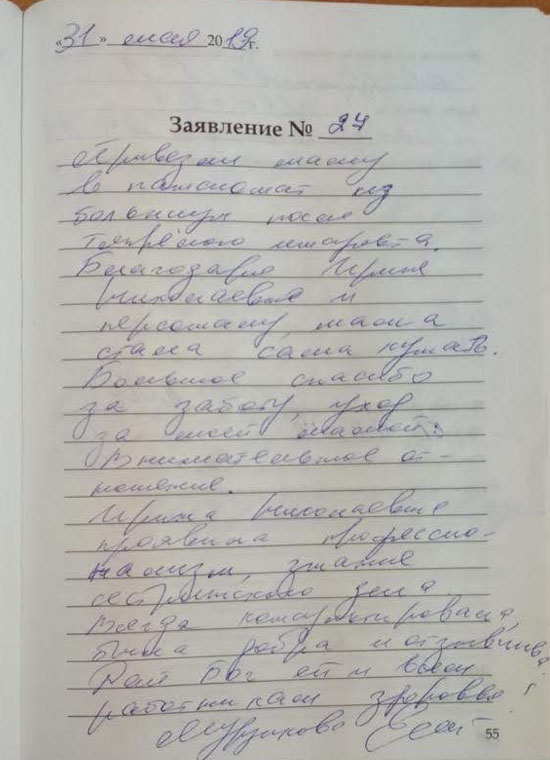 «31» мая 2019г.
Заявление № 27
Привезли маму
в пансионат из
больницы после
тяжёлого инсульта.
Благодаря Ирине
Николаевне и
персоналу, мама
стала сама кушать.
Большое спасибо
за заботу, уход
за моей мамой.
Внимательное от-
ношение.
Ирина Николаевна
проявила профессио-
нализм, знание
сестринского дела.
Всегда консультировала,
была добра и отзывчива.
Дай Бог ей и всем
работникам здоровья!
55